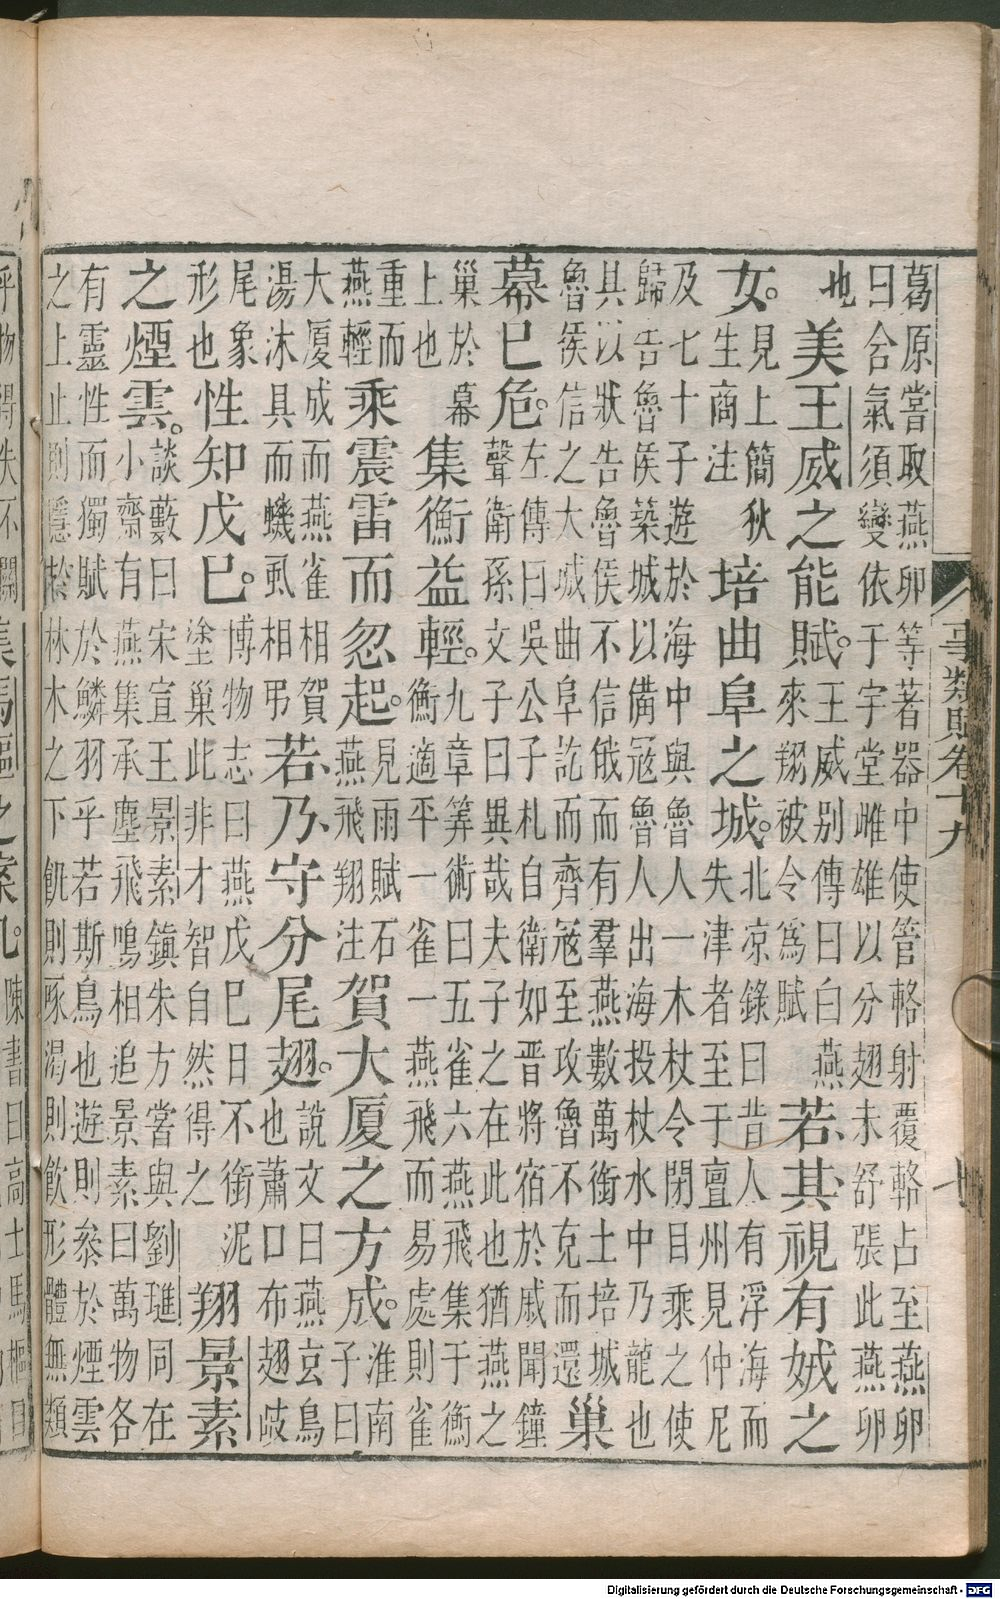 葛原嘗取燕卵等著器中使管輅射覆輅占至燕卵
曰含氣須變依于宇堂雌雄以分翅未舒張此燕卵
也美王威之能賦。王威别傳曰白燕
來翔被令爲賦若其視有娀之
女。見上簡秋
生商注培曲阜之城。北凉錄曰昔人有浮海而
失津者至于亶州見仲尼
及七十子遊於海中與魯人一木杖令閉目乘之使
歸告魯侯築城以備冦魯人出海投杖水中乃龍也
具以狀告魯侯不信俄而有羣燕數萬銜土培城
魯侯信之大城曲阜訖而齊冦至攻魯不克而還巢
幕巳危。左傳曰吳公子札自衛如晋將宿於戚聞鐘
聲衛孫文子曰異哉夫子之在此也猶燕之
巢於幕
上也集衡益輕。九章筭術曰五雀六燕飛集于衡
衡適平一雀一燕飛而易處則雀
重而
燕輕乘震雷而忽起。見雨賦石
燕飛翔注賀大厦之方成。淮南
子曰
大厦成而燕雀相賀
湯沐具而蟣虱相弔若乃守分尾翅。說文曰燕玄鳥
也蕭口布翅歧
尾象
形也性知戊巳。博物志曰燕戊巳日不銜泥
塗巢此非才智自然得之翔景素
之煙雲。談藪曰宋宣王景素鎮朱方嘗與劉璡同在
小齋有燕集承塵飛鳴相追景素曰萬物各
有靈性而獨賦於鱗羽乎若斯鳥也遊則叅於煙雲
之上止則隱於林木之下飢則啄渴則飲形體無類
事類賦卷十九
七
乎物得失不關集馬樞之案几。陳書曰高士馬樞目
Digitalisierung gefördert durch die Deutsche Forschungsgemeinschaft - DFG